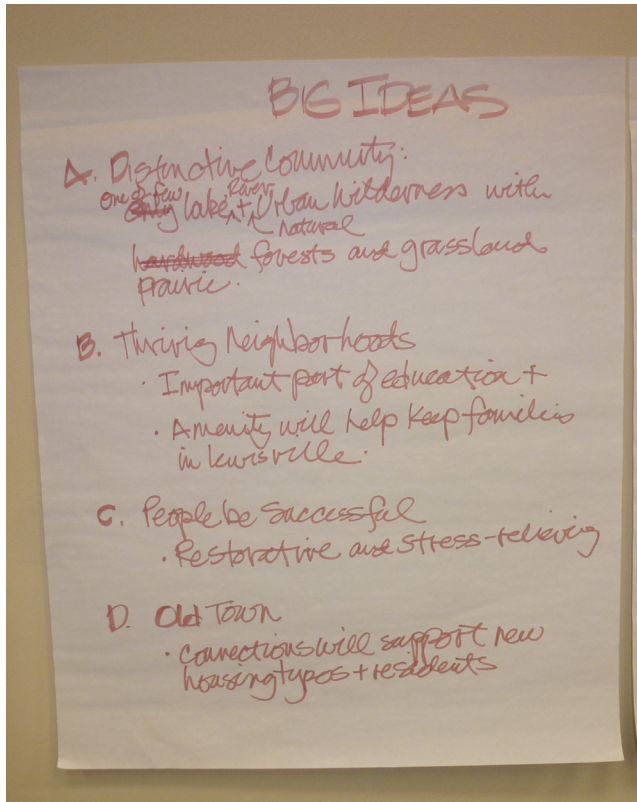 BIG IDEAS
A. Distinctive Community:
one of few River
lake + Urban Wilderness with
natural
hardwood forests and grassland
prairie.
B. Thriving Neighborhoods
· Important part of education +
· Amenity will help keep families
in Lewisville.
C. People be Successful
· Restorative and stress-relieving
D. Old Town
· Connections will support new
housing types + residents